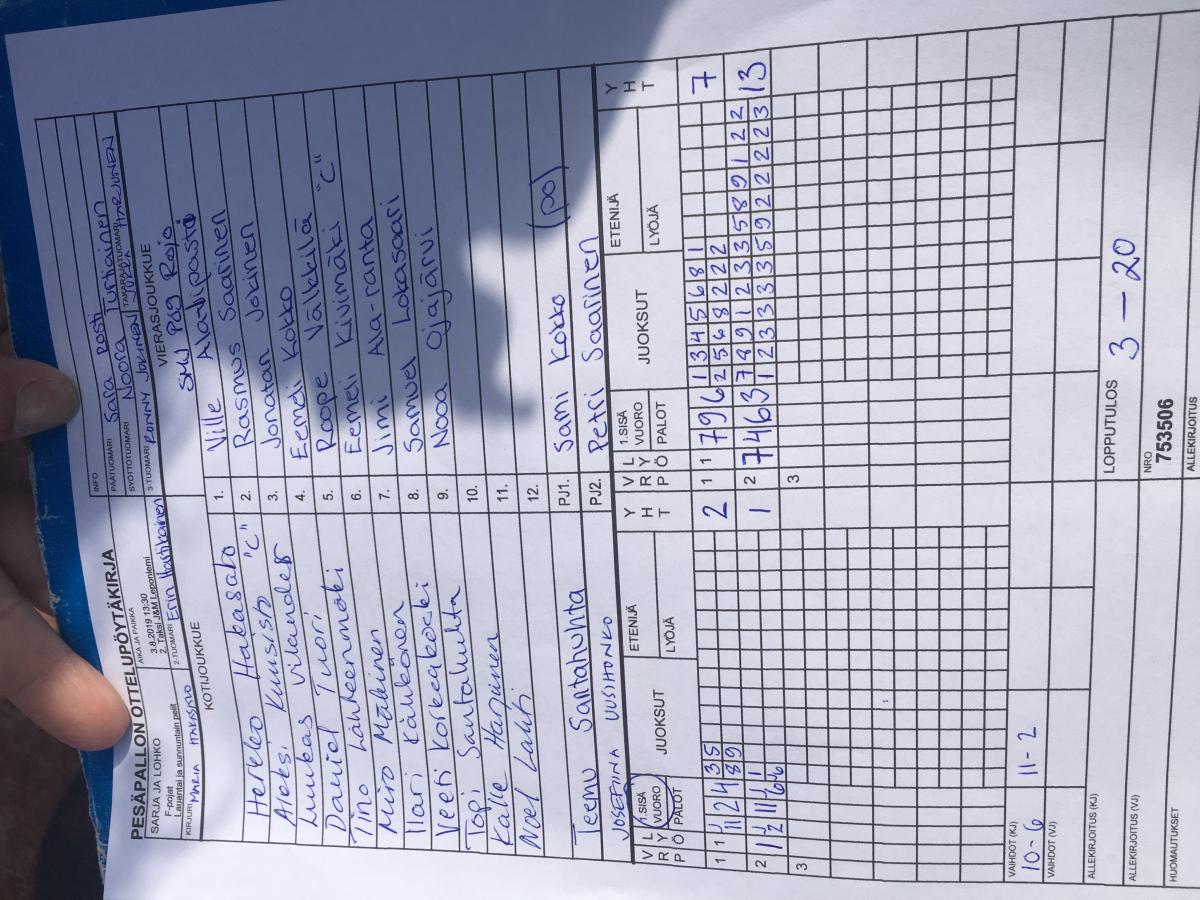 PESÄPALLON OTTELUPÖYTÄKIRJA
SARJA JA LOHKO
F-pojat
Lauantai ja sunnuntain pelit
AIKA JA PAIKKA
3.8.2019 13:30
2. Taksi J&M Leponiemi
INFO
PÄÄTUOMARI Sara Posti
SYÖTTÖTUOMARI Noora Turtiainen
TAKARAJATUOMARI JUKKA HARJUNEN
KIRJURI MARIA HAKASALO
2-TUOMARI Erin Hartikainen
3-TUOMARI RONNY JOKINEN
KOTIJOUKKUE
VIERASJOUKKUE
SMJ PÖG Rojo
Alatipasta
Herkko Hakasalo 1. Ville Saarinen
Aleksi Kuusisto "C" 2. Rasmus Jokinen
Luukas Vilander 3. Jonatan Kokko
Daniel Tuori 4. Eemeli Välkkilä
Tino Lähteenmäki 5. Roope Kivimäki "C"
Miro Mäkinen 6. Eemeli Ala-ranta
Ilari Känkänen 7. Jimi Lokasaari
Veeti Korkeakoski 8. Samuel Ojajärvi
Topi Santaluhta 9. Nooa
Kalle Harjunen 10.
Noel Lahti 11.
12.
Teemu Santahuhta PJ1. Sami Kokko (po)
JOSEFIINA UUSIHONKO PJ2. Petri Saarinen
V R P L Y Ö 1.SISÄ VUORO PALOT JUOKSUT ETENIJÄ LYÖJÄ Y H T
V R P L Y Ö 1.SISÄ VUORO PALOT JUOKSUT ETENIJÄ LYÖJÄ Y H T
1 1 11 2 4 3 5 2 1 1 7 9 6 1 3 4 5 6 8 1 7
8 9 2 5 6 8 2 2 2
2 1 1 1 2 7 4 6 3 7 8 9 1 2 3 3 5 8 9 1 2 2 13
6 1 2 3 3 3 3 5 9 2 2 2 2 3
3 3
VAIHDOT (KJ)
10-6 11-2
VAIHDOT (VJ)
ALLEKIRJOITUS (KJ)
LOPPUTULOS 3 – 20
ALLEKIRJOITUS (VJ)
NRO
753506
HUOMAUTUKSET
ALLEKIRJOITUS